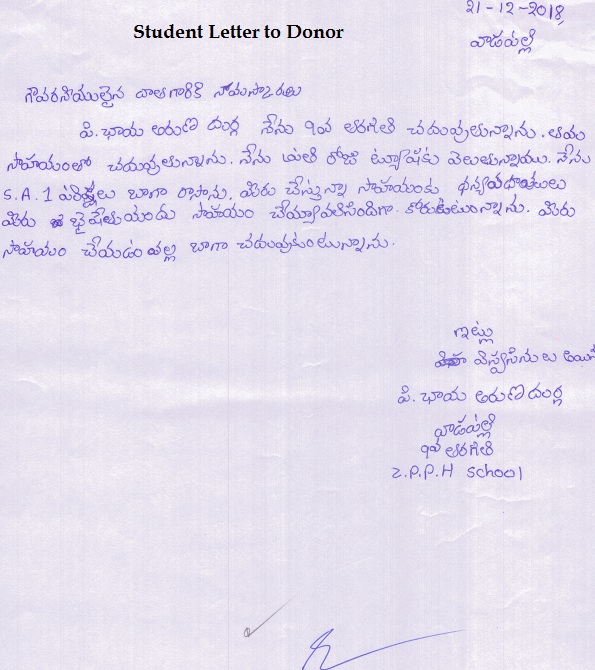 21-12-2018
Student Letter to Donor
వాడపల్లి
గౌవరనియులైన దాత గారికి నామస్కారతులు
పి. ఛాయ అరుణ దుర్గ నేను 9వ తరగతి చదువులున్నాను.
సాహయంతో చదువులున్నాను. నేను ప్రతి రోజు ట్యూషకు వెలుతున్నాయు. నేను
S.A.1 పరిక్షలు బాగా రాసాను. మీరు చేస్తున్నా సాహయంకు ధన్యవాదములు
మీరు సాహయం చేయ్యావలిసిందిగా కోరుకుటుంన్నాను. మీరు
సాహయం చేయడం వల్ల బాగా చదువుకుంటున్నాను.
ఇట్లు
పి. ఛాయ అరుణ దుర్గ
వాడపల్లి
9వ తరగతి
Z.P.P.H school